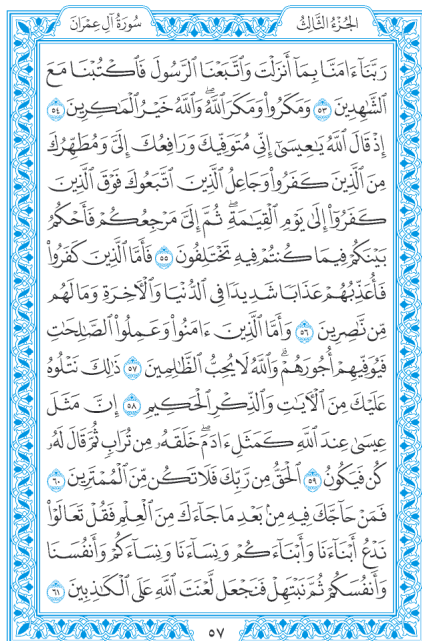 الجُزءُ الثَّالِثُ
سُورَةُ آلِ عِمْرَانَ
رَبَّنَآ ءَامَنَّا بِمَآ أَنزَلْتَ وَٱتَّبَعْنَا ٱلرَّسُولَ فَٱكْتُبْنَا مَعَ
ٱلشَّٰهِدِينَ ٥٣ وَمَكَرُوا۟ وَمَكَرَ ٱللَّهُۖ وَٱللَّهُ خَيْرُ ٱلْمَٰكِرِينَ ٥٤
إِذْ قَالَ ٱللَّهُ يَٰعِيسَىٰٓ إِنِّى مُتَوَفِّيكَ وَرَافِعُكَ إِلَىَّ وَمُطَهِّرُكَ
مِنَ ٱلَّذِينَ كَفَرُوا۟ وَجَاعِلُ ٱلَّذِينَ ٱتَّبَعُوكَ فَوْقَ ٱلَّذِينَ
كَفَرُوٓا۟ إِلَىٰ يَوْمِ ٱلْقِيَٰمَةِۖ ثُمَّ إِلَىَّ مَرْجِعُكُمْ فَأَحْكُمُ
بَيْنَكُمْ فِيمَا كُنتُمْ فِيهِ تَخْتَلِفُونَ ٥٥ فَأَمَّا ٱلَّذِينَ كَفَرُوا۟
فَأُعَذِّبُهُمْ عَذَابًا شَدِيدًا فِى ٱلدُّنْيَا وَٱلْءَاخِرَةِ وَمَا لَهُم
مِّن نَّٰصِرِينَ ٥٦ وَأَمَّا ٱلَّذِينَ ءَامَنُوا۟ وَعَمِلُوا۟ ٱلصَّٰلِحَٰتِ
فَيُوَفِّيهِمْ أُجُورَهُمْۗ وَٱللَّهُ لَا يُحِبُّ ٱلظَّٰلِمِينَ ٥٧ ذَٰلِكَ نَتْلُوهُ
عَلَيْكَ مِنَ ٱلْءَايَٰتِ وَٱلذِّكْرِ ٱلْحَكِيمِ ٥٨ إِنَّ مَثَلَ
عِيسَىٰ عِندَ ٱللَّهِ كَمَثَلِ ءَادَمَۖ خَلَقَهُۥ مِن تُرَابٍ ثُمَّ قَالَ لَهُۥ
كُن فَيَكُونُ ٥٩ ٱلْحَقُّ مِن رَّبِّكَ فَلَا تَكُن مِّنَ ٱلْمُمْتَرِينَ ٦٠
فَمَنْ حَآجَّكَ فِيهِ مِنۢ بَعْدِ مَا جَآءَكَ مِنَ ٱلْعِلْمِ فَقُلْ تَعَالَوْا۟
نَدْعُ أَبْنَآءَنَا وَأَبْنَآءَكُمْ وَنِسَآءَنَا وَنِسَآءَكُمْ وَأَنفُسَنَا
وَأَنفُسَكُمْ ثُمَّ نَبْتَهِلْ فَنَجْعَل لَّعْنَتَ ٱللَّهِ عَلَى ٱلْكَٰذِبِينَ ٦١
٥٧